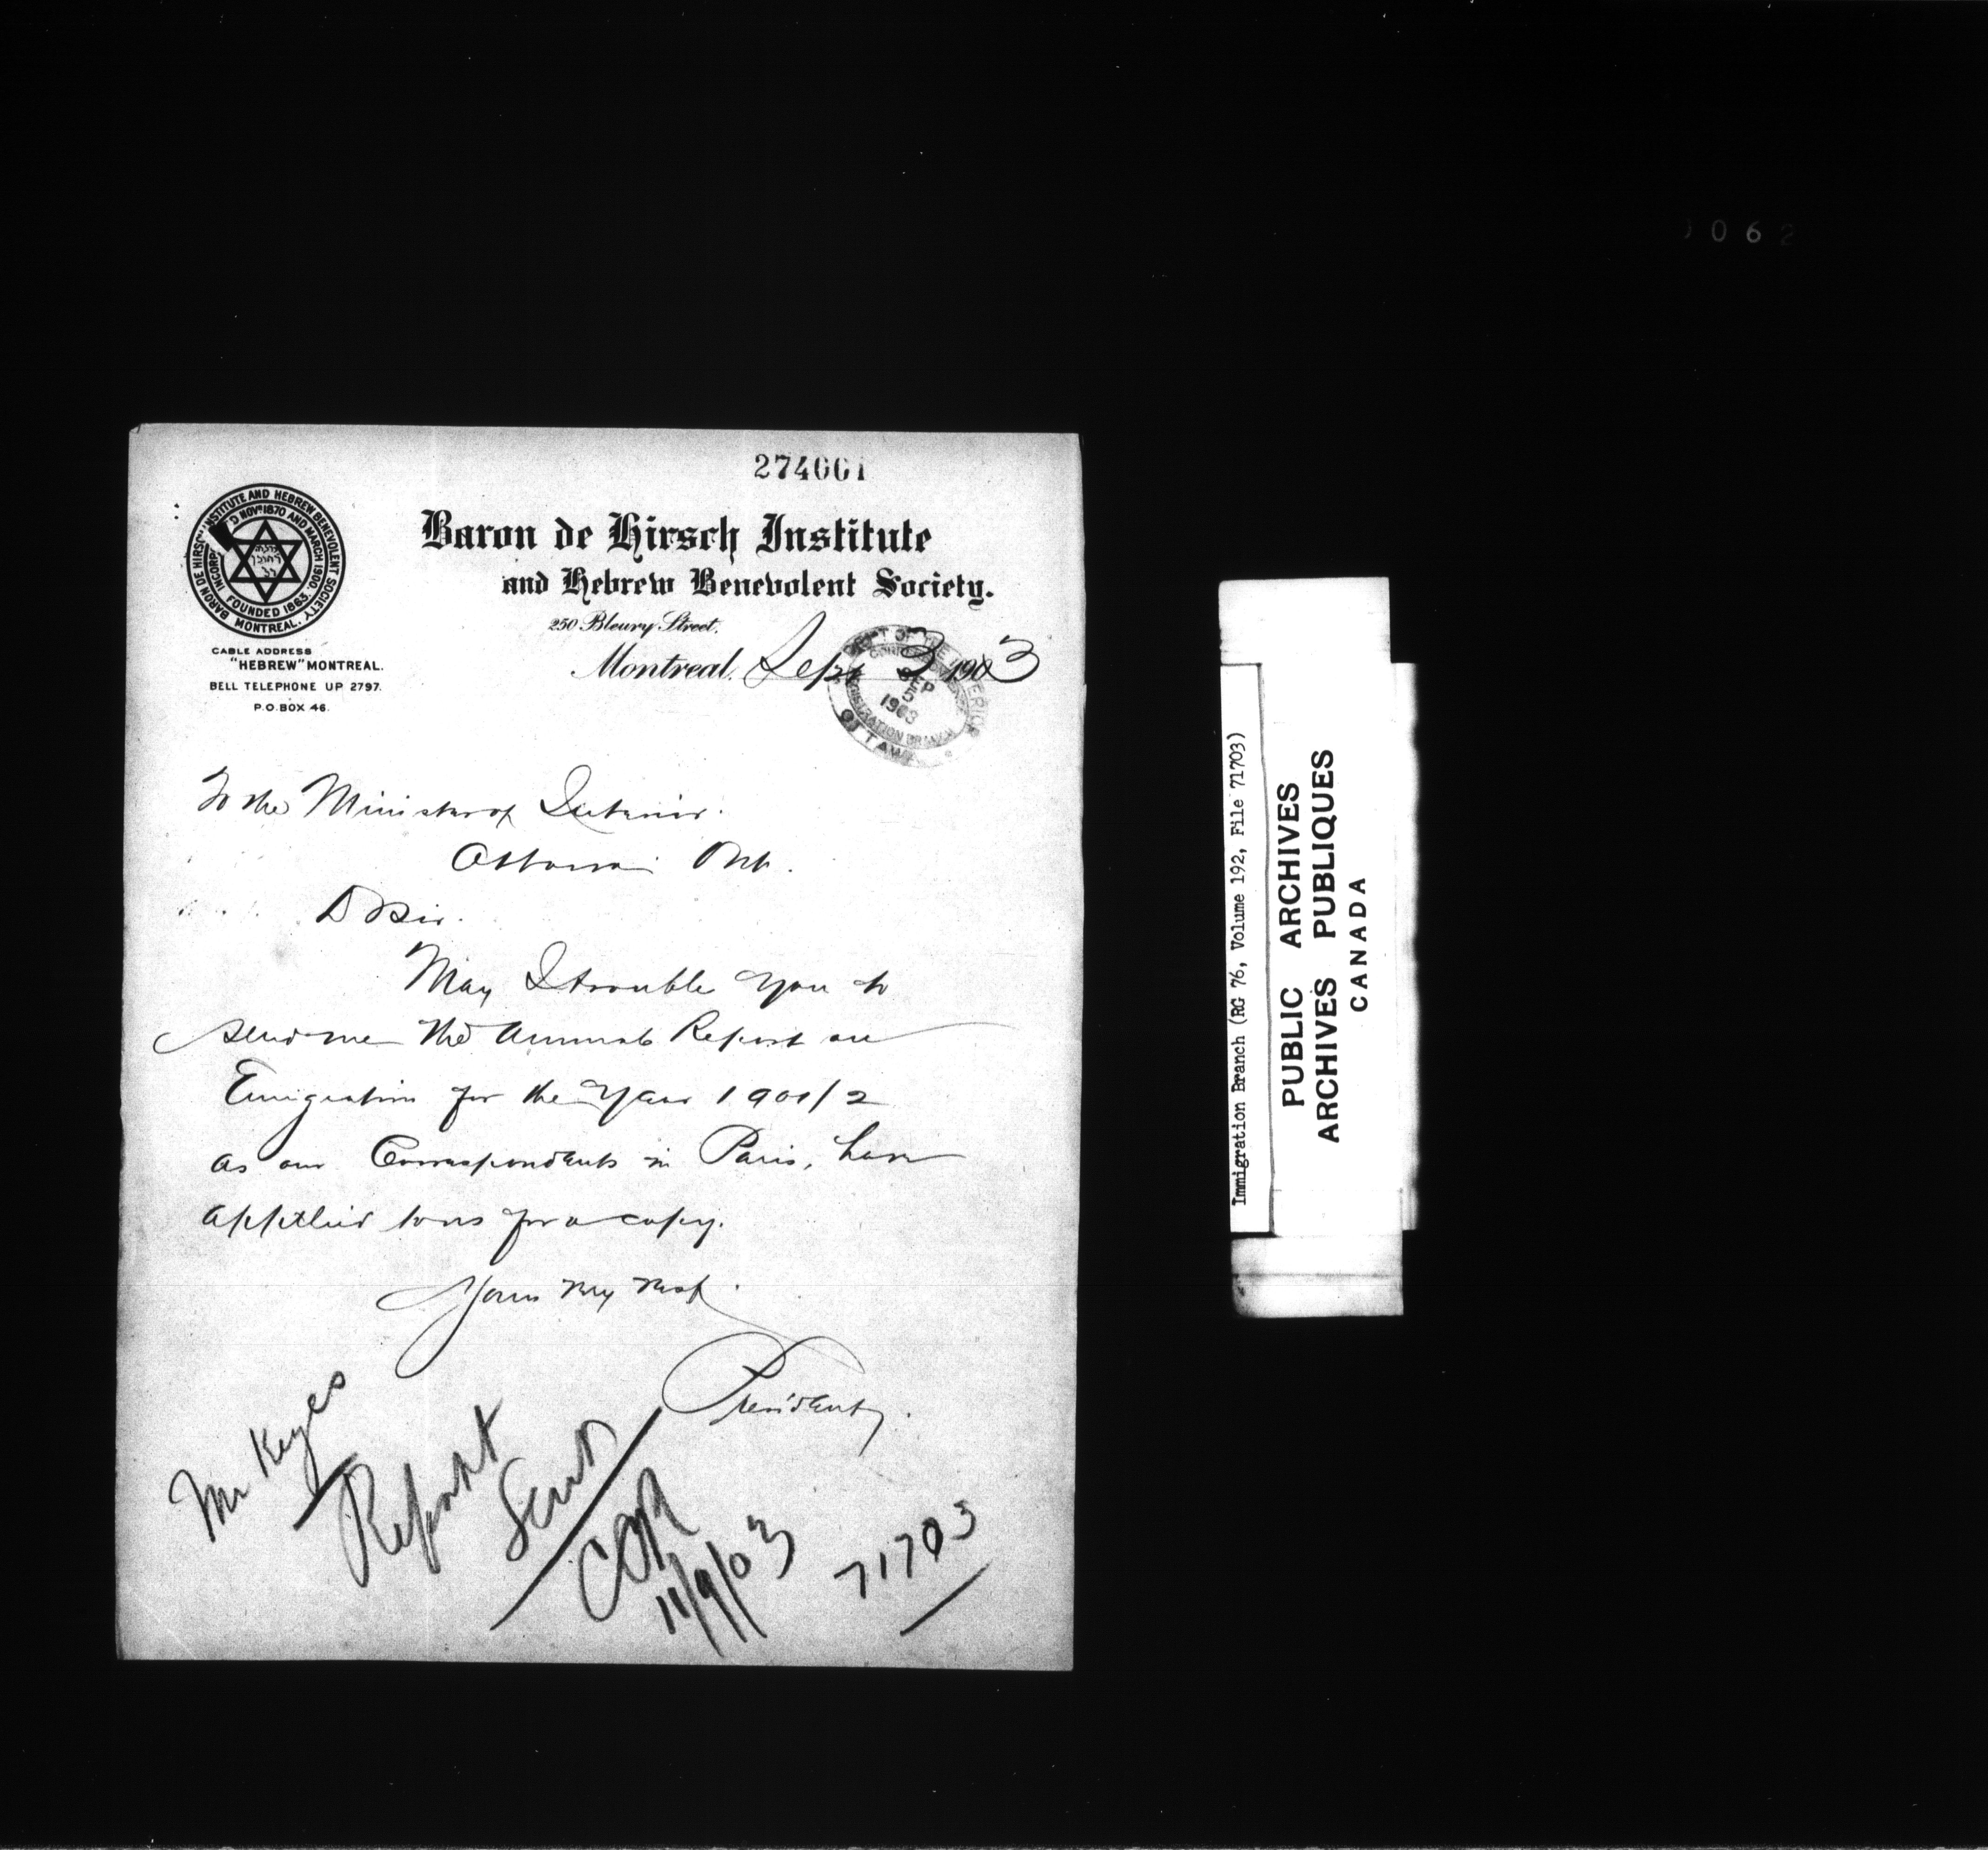 274661
BARON DE HIRSCH INSTITUTE AND HEBREW BENEVOLENT SOCIETY.
MONTREAL.
INCORP D NOV. 1870 AND MARCH 1900.
FOUNDED 1863.
Baron de Hirsch Institute
and Hebrew Benevolent Society.
250 Bleury Street.
CABLE ADDRESS
"HEBREW" MONTREAL.
BELL TELEPHONE UP 2797.
P.O. BOX 46.
Montreal, Sept 3 1903
DEPT OF THE INTERIOR
SEP
5
1903
REGISTRATION BRANCH
OTTAWA
To the Minister of Interior.
Ottawa Ont.
D Sir.
May I trouble you to
send me the Annual Report on
Emigration for the Year 1901/2
as our Correspondents in Paris, have
applied to us for a copy.
Yours very resp.
President
Mr Keyes
Report
Sent
COR
11/9/03
71703
Immigration Branch (RG 76, Volume 192, File 71703)
PUBLIC ARCHIVES
ARCHIVES PUBLIQUES
CANADA
062